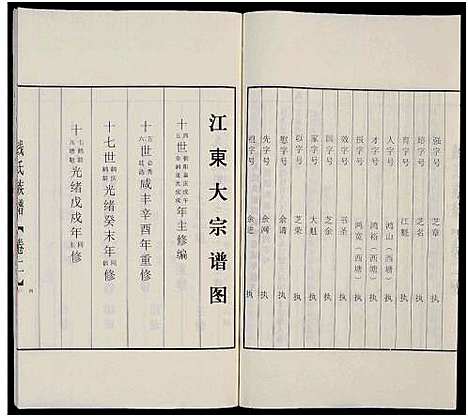 强字号 芝章 执
培字号 芝名 执
育字号 江魁 执
人字号 鸿山（西塘） 执
才字号 鸿裕（西塘） 执
报字号 鸿宽（西塘） 执
效字号 书圣 执
国字号 芝金 执
家字号 大魁 执
以字号 芝荣 执
慰字号 余请 执
先字号 余网 执
祖字号 余进 执
江東大宗谱图
年主修编
十世咸丰辛酉年重修
十七世光绪癸未年修
光绪戊戌年修
氏族譜